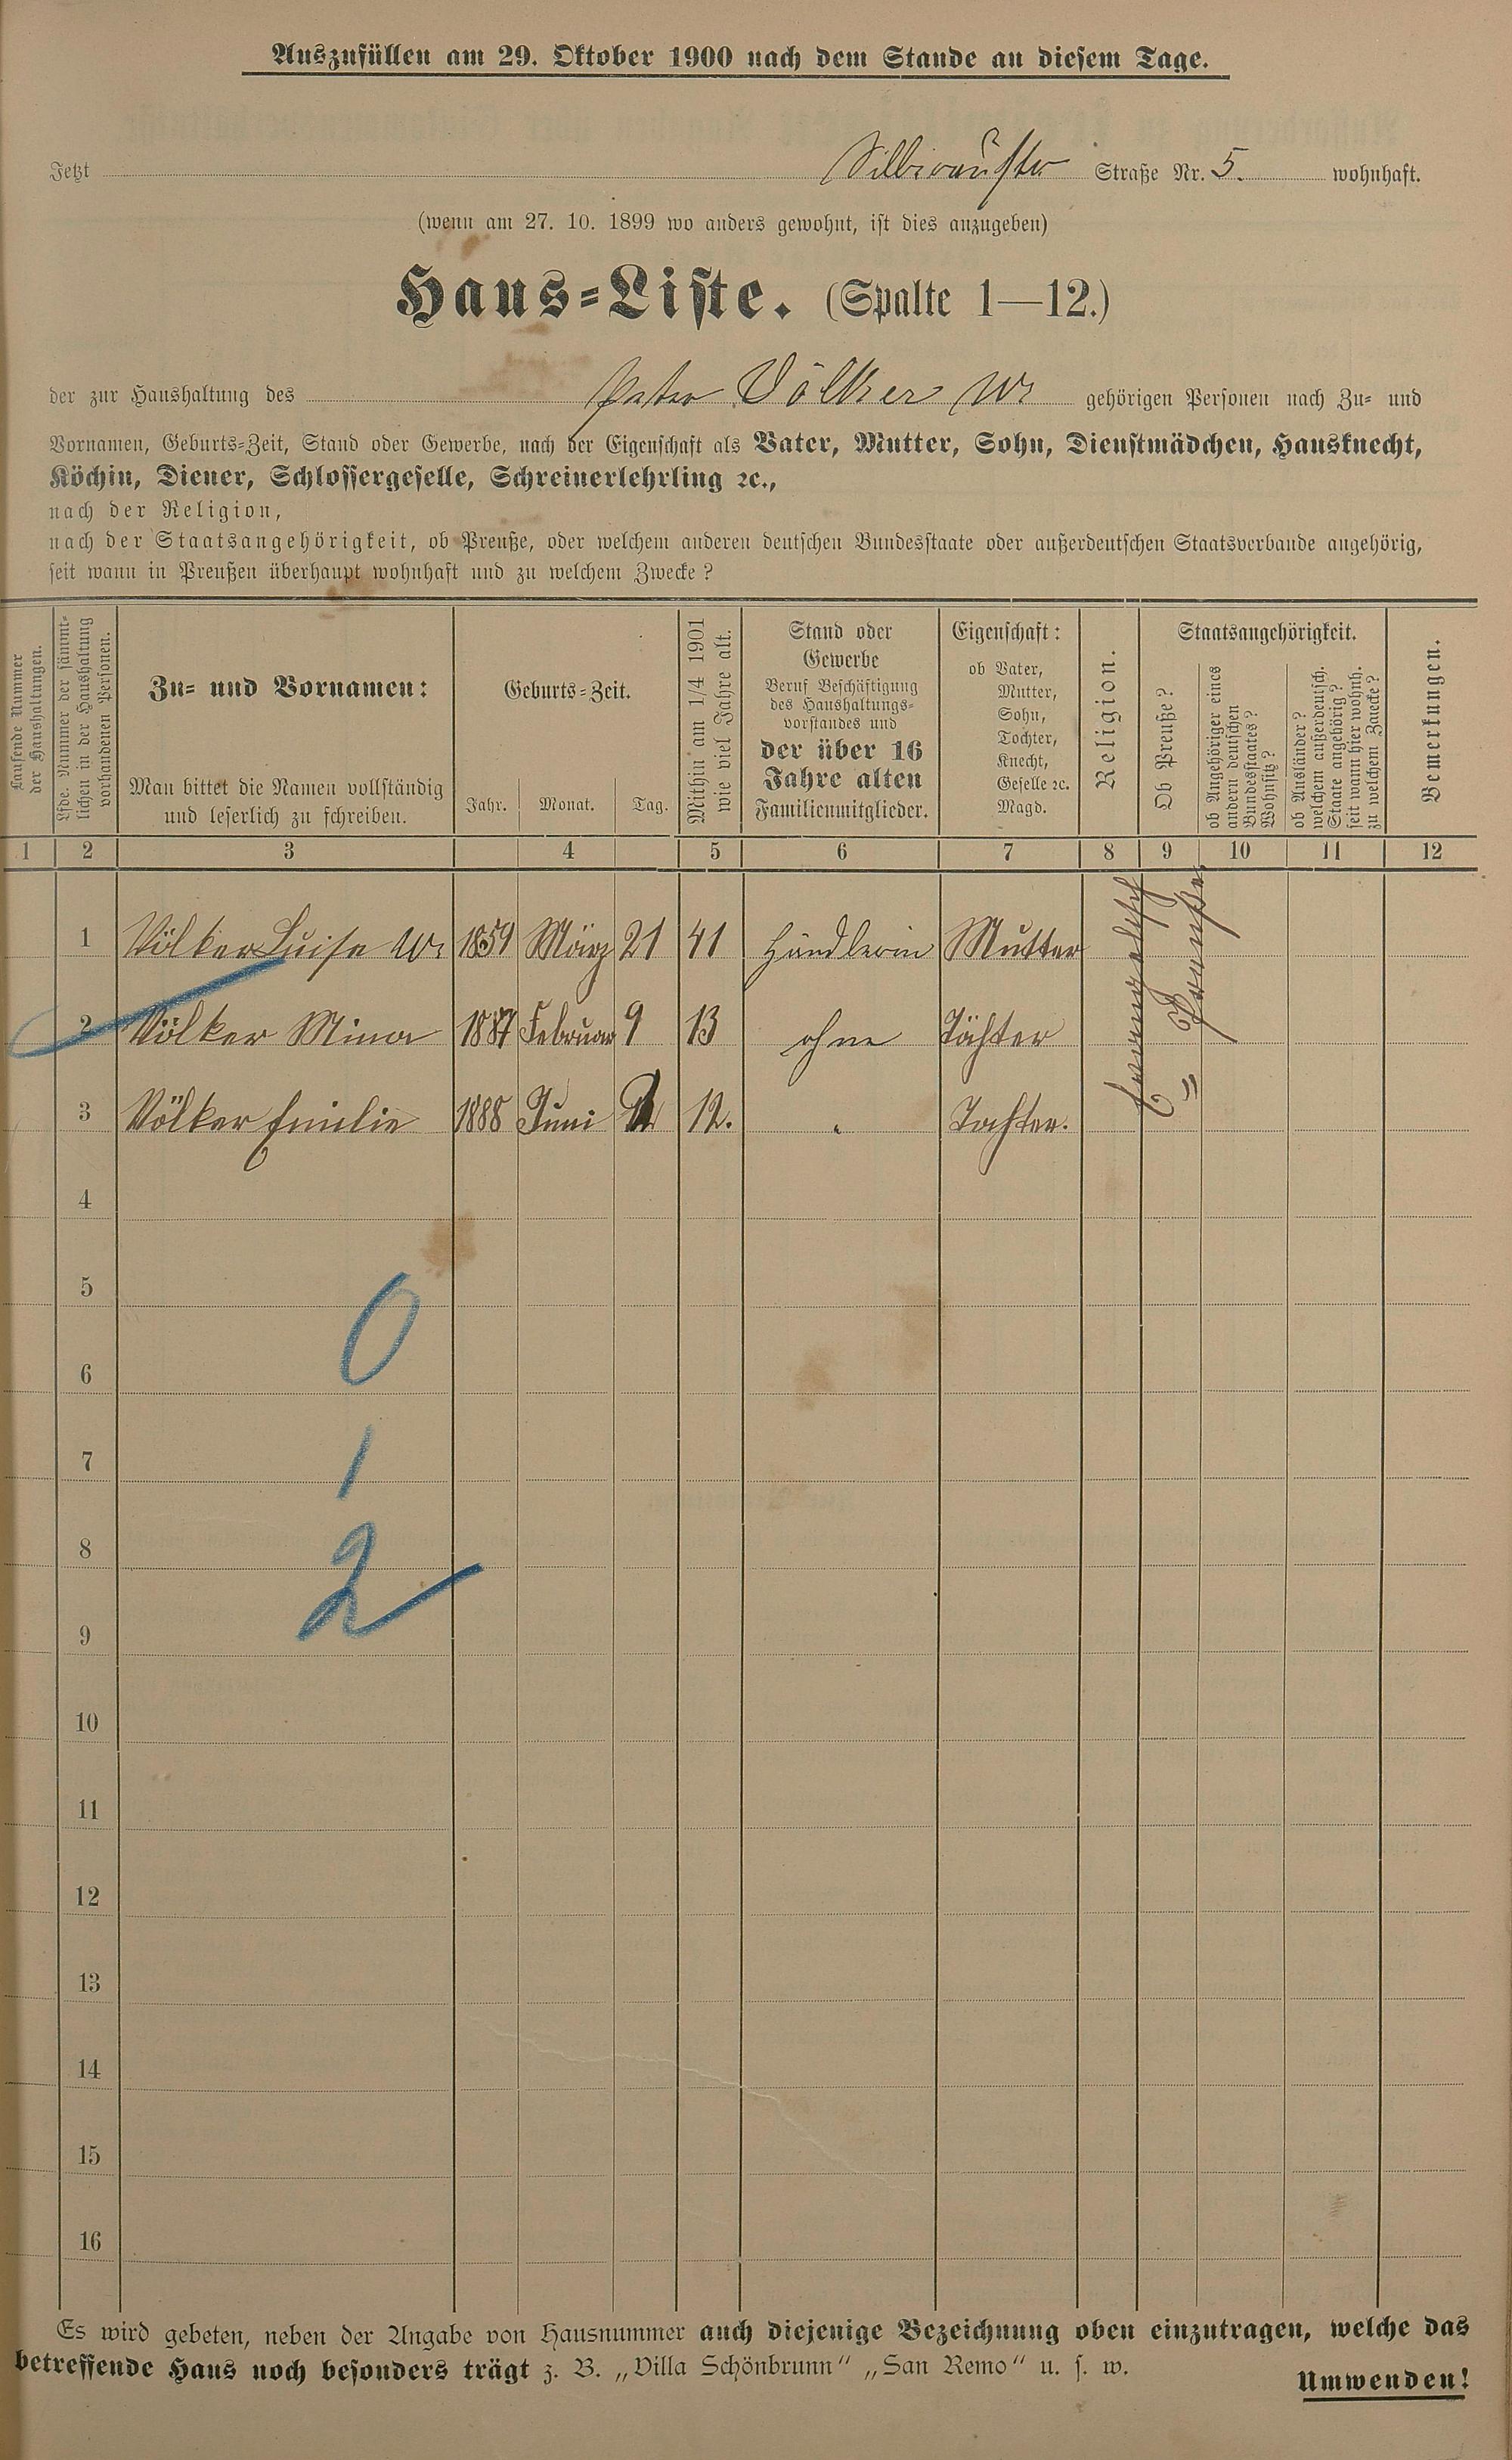 Auszufüllen am 29. Oktober 1900 nach dem Stande an diesem Tage.
Jetzt Straße Nr. 5. wohnhaft.
(wenn am 27. 10. 1899 wo anders gewohnt, ist dies anzugeben)
Haus-Liste. (Spalte 1—12.)
der zur Haushaltung des Peter Völker Ww. gehörigen Personen nach Zu- und
Vornamen, Geburts-Zeit, Stand oder Gewerbe, nach der Eigenschaft als Vater, Mutter, Sohn, Dienstmädchen, Hausknecht,
Köchin, Diener, Schlossergeselle, Schreinerlehrling ꝛc.,
nach der Religion,
nach der Staatsangehörigkeit, ob Preuße, oder welchem anderen deutschen Bundesstaate oder außerdeutschen Staatsverbande angehörig,
seit wann in Preußen überhaupt wohnhaft und zu welchem Zwecke?
Laufende Nummer der Haushaltungen.
Lfde. Nummer der sämmtlichen in der Haushaltung vorhandenen Personen.
Zu- und Vornamen:
Man bittet die Namen vollständig
und leserlich zu schreiben.
Geburts-Zeit.
Jahr. Monat. Tag.
Mithin am 1/4 1901
wie viel Jahre alt.
Stand oder
Gewerbe
Beruf Beschäftigung
des Haushaltungs-
vorstandes und
der über 16
Jahre alten
Familienmitglieder.
Eigenschaft:
ob Vater,
Mutter,
Sohn,
Tochter,
Knecht,
Geselle ꝛc.
Magd.
Religion.
Staatsangehörigkeit.
Ob Preuße?
ob Angehöriger eines
andern deutschen
Bundesstaates?
Wohnsitz?
ob Ausländer?
welchem außerdeutsch.
Staate angehörig?
seit wann hier wohnh.
zu welchem Zwecke?
Bemerkungen.
1 2 3 4 5 6 7 8 9 10 11 12
1 Völker Luise Ww. 1859 März 21 41 Händlerin Mutter
2 Völker Mina 1887 Februar 9 13 ohne Töchter
3 Völker Emilie 1888 Juni 12. " Tochter.
Evangelisch
" Preuße
4
5
6
7
8
9
10
11
12
13
14
15
16
0
1
2
Es wird gebeten, neben der Angabe von Hausnummer auch diejenige Bezeichnung oben einzutragen, welche das
betreffende Haus noch besonders trägt z. B. „Villa Schönbrunn“ „San Remo“ u. s. w.
Umwenden!